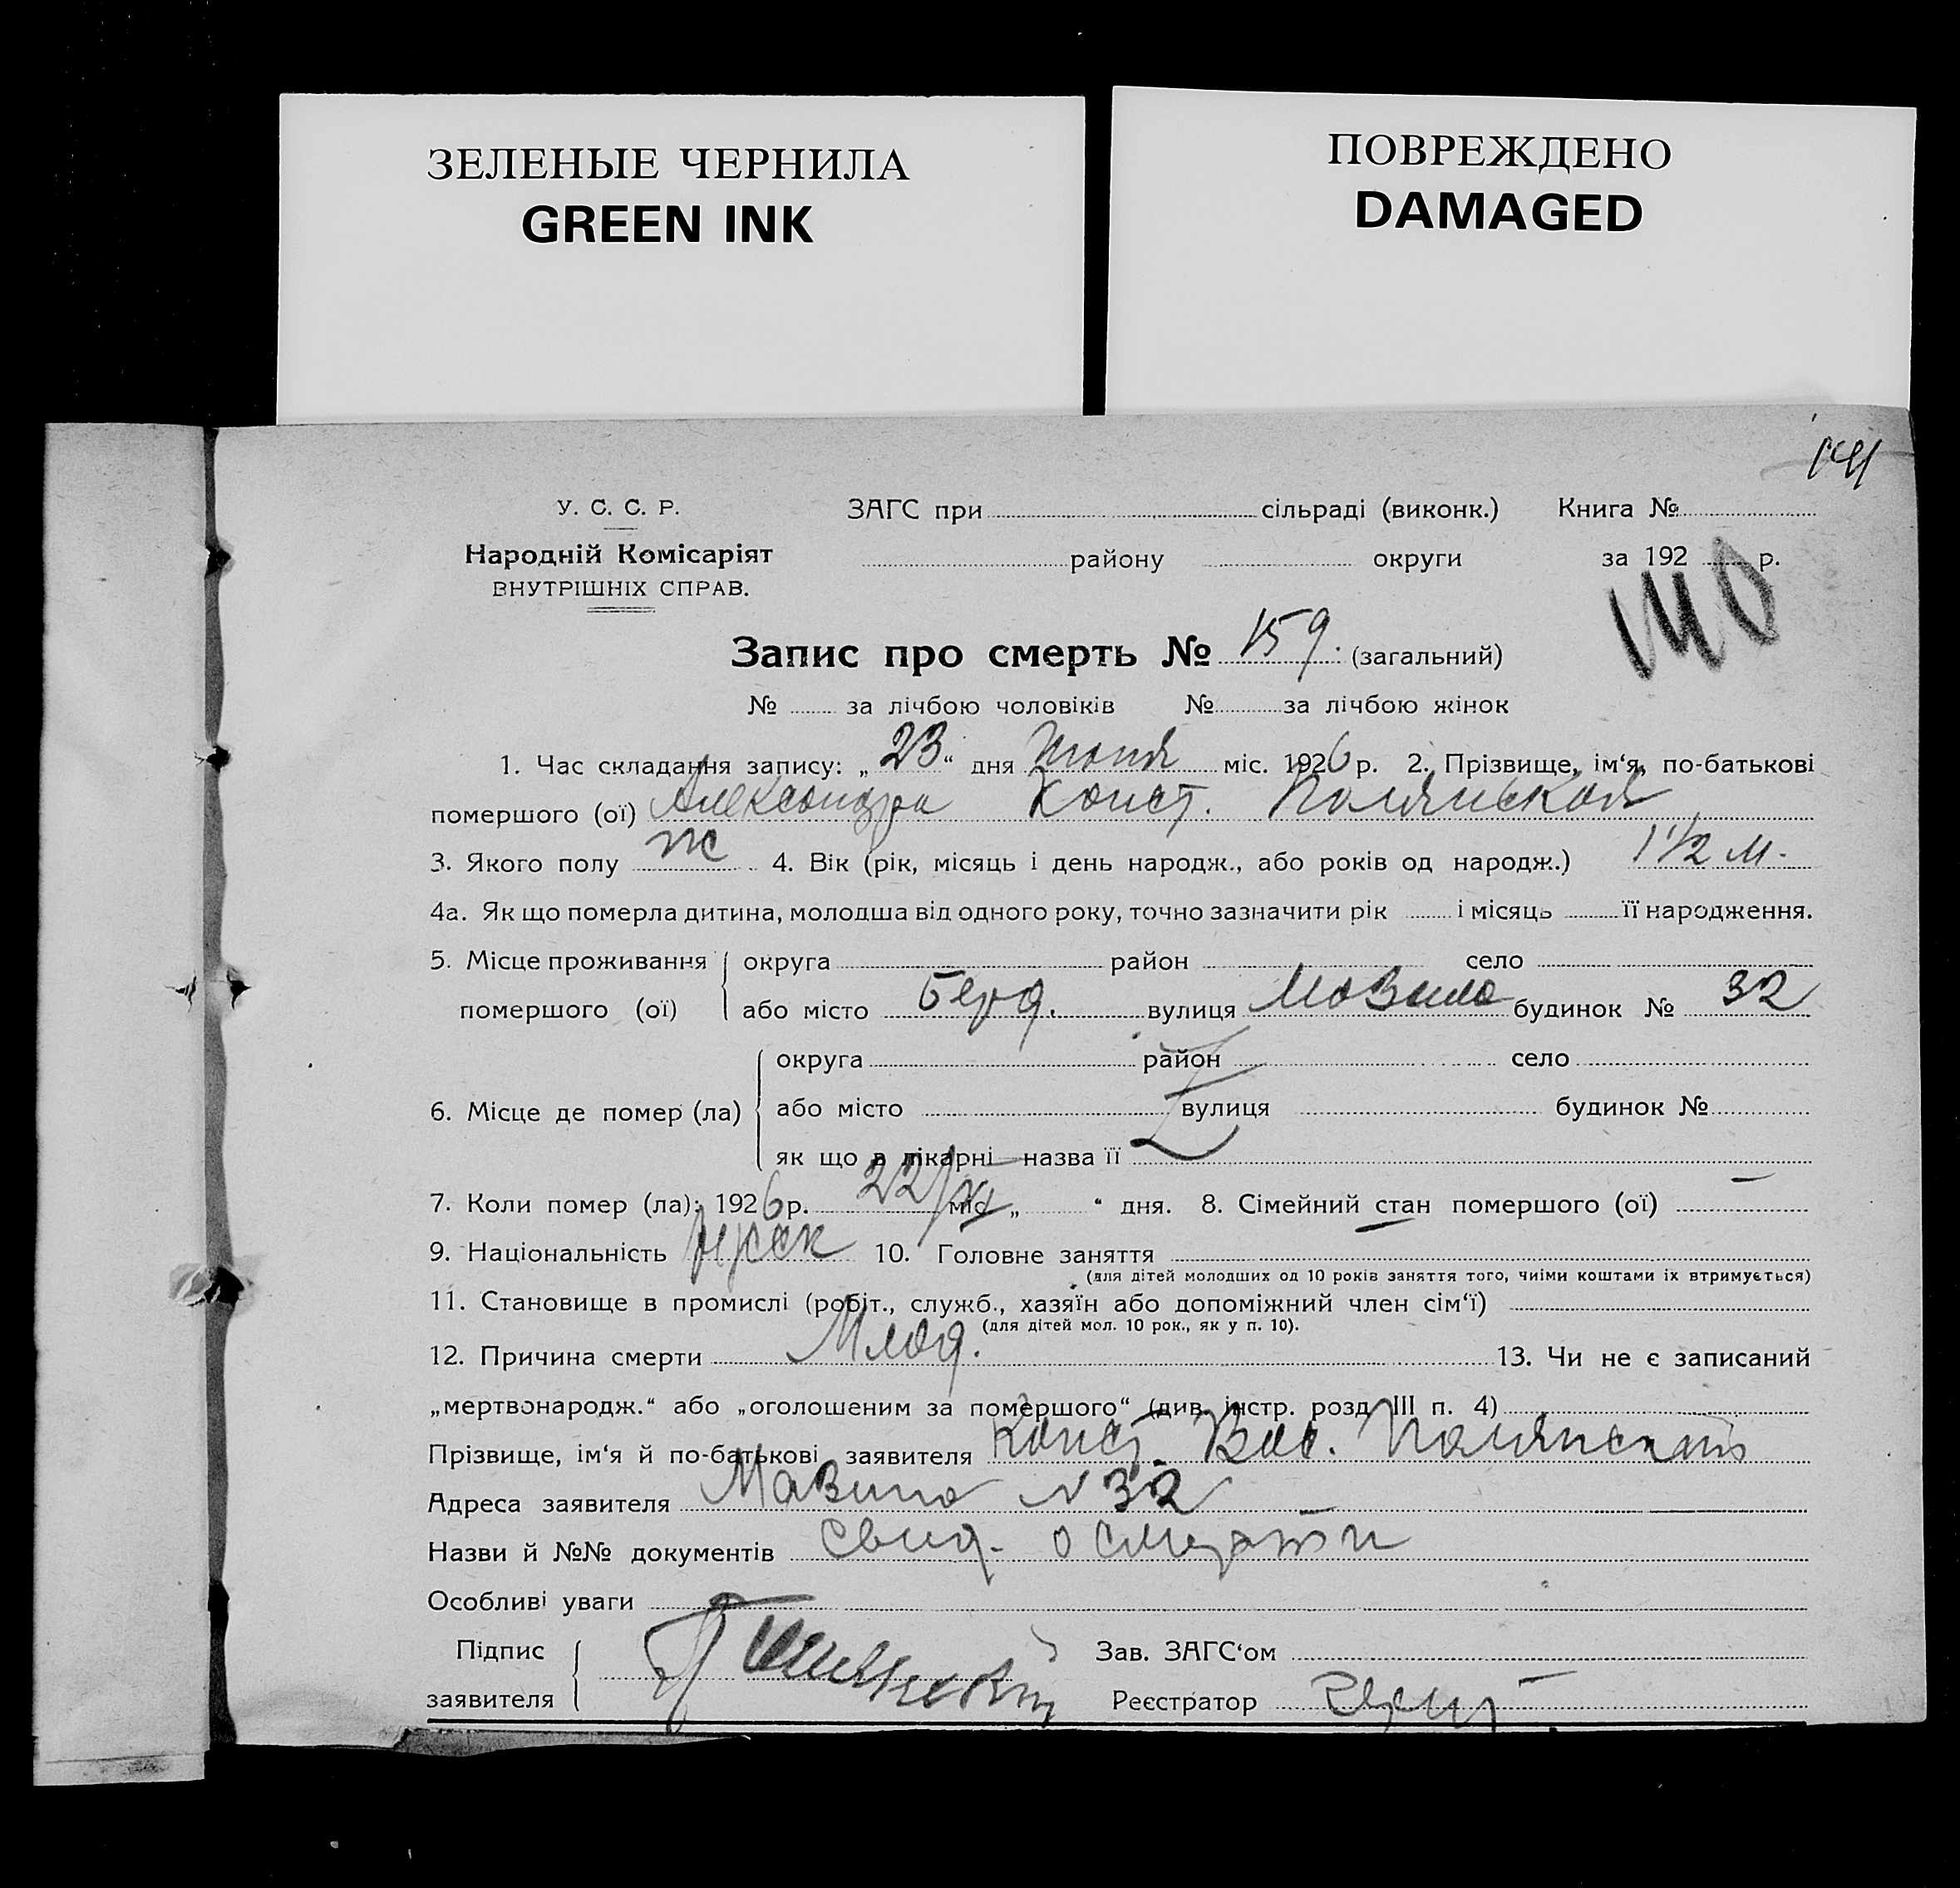 ЗЕЛЕНЫЕ ЧЕРНИЛА
GREEN INK
ПОВРЕЖДЕНО
DAMAGED
У. С. С. Р.
Народній Комісаріят
ВНУТРІШНІХ СПРАВ.
ЗАГС при сільраді (виконк.) Книга №
району округи за 192 р.
Запис про смерть № 159. (загальний)
№ за лічбою чоловіків № за лічбою жінок
1. Час складання запису: „23“ дня міс. 1926 р. 2. Прізвище, ім‘я, по-батькові
помершого (ої) Александра Конст. Полянская
3. Якого полу ж 4. Вік (рік, місяць і день народж., або років од народж.) 1 1/2 м.
4а. Як що померла дитина, молодша від одного року, точно зазначити рік і місяць її народження.
5. Місце проживання помершого (ої) округа район село
або місто Берд. вулиця будинок № 32
6. Місце де помер (ла) округа район село
або місто вулиця будинок №
як що в лікарні назва її
7. Коли помер (ла): 1926 р. 22/VI міс „ “ дня. 8. Сімейний стан помершого (ої) —
9. Національність русск 10. Головне заняття —
(для дітей молодших од 10 років заняття того, чиїми коштами їх втримується)
11. Становище в промислі (робіт., служб., хазяїн або допоміжний член сім‘ї)
(для дітей мол. 10 рок., як у п. 10).
12. Причина смерти Млад. 13. Чи не є записаний
„мертвонародж.“ або „оголошеним за помершого“ (див. інстр. розд III п. 4)
Прізвище, ім‘я й по-батькові заявителя Конст. Вас.
Адреса заявителя № 32
Назви й №№ документів свид. о смерти
Особливі уваги
Підпис заявителя
Зав. ЗАГС‘ом
Реєстратор